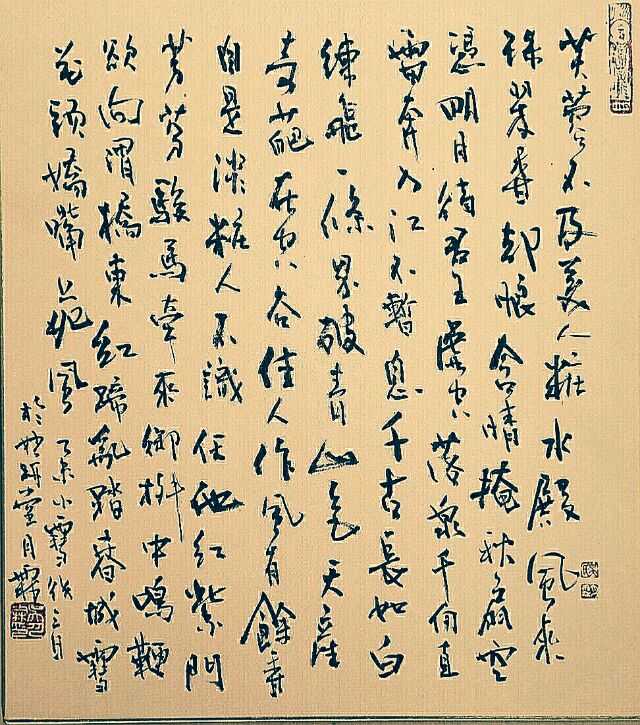 芙蓉不及美人粧水殿風來
珠翠香卻恨含情掩秋扇空
懸明月待君王虛空落泉千仞直
雷奔入江不暫息千古長如白
練飛一條界破青山色天產
奇葩在空谷佳人作風有餘香
自是淡粧人不識任他紅紫鬥
芬芳駿馬牽來御柳中鳴鞭
欲向渭橋東紅蹄亂踏春城雪
花頷嬌嘶上苑風
乙未小雪後三日
於妙研堂月霖